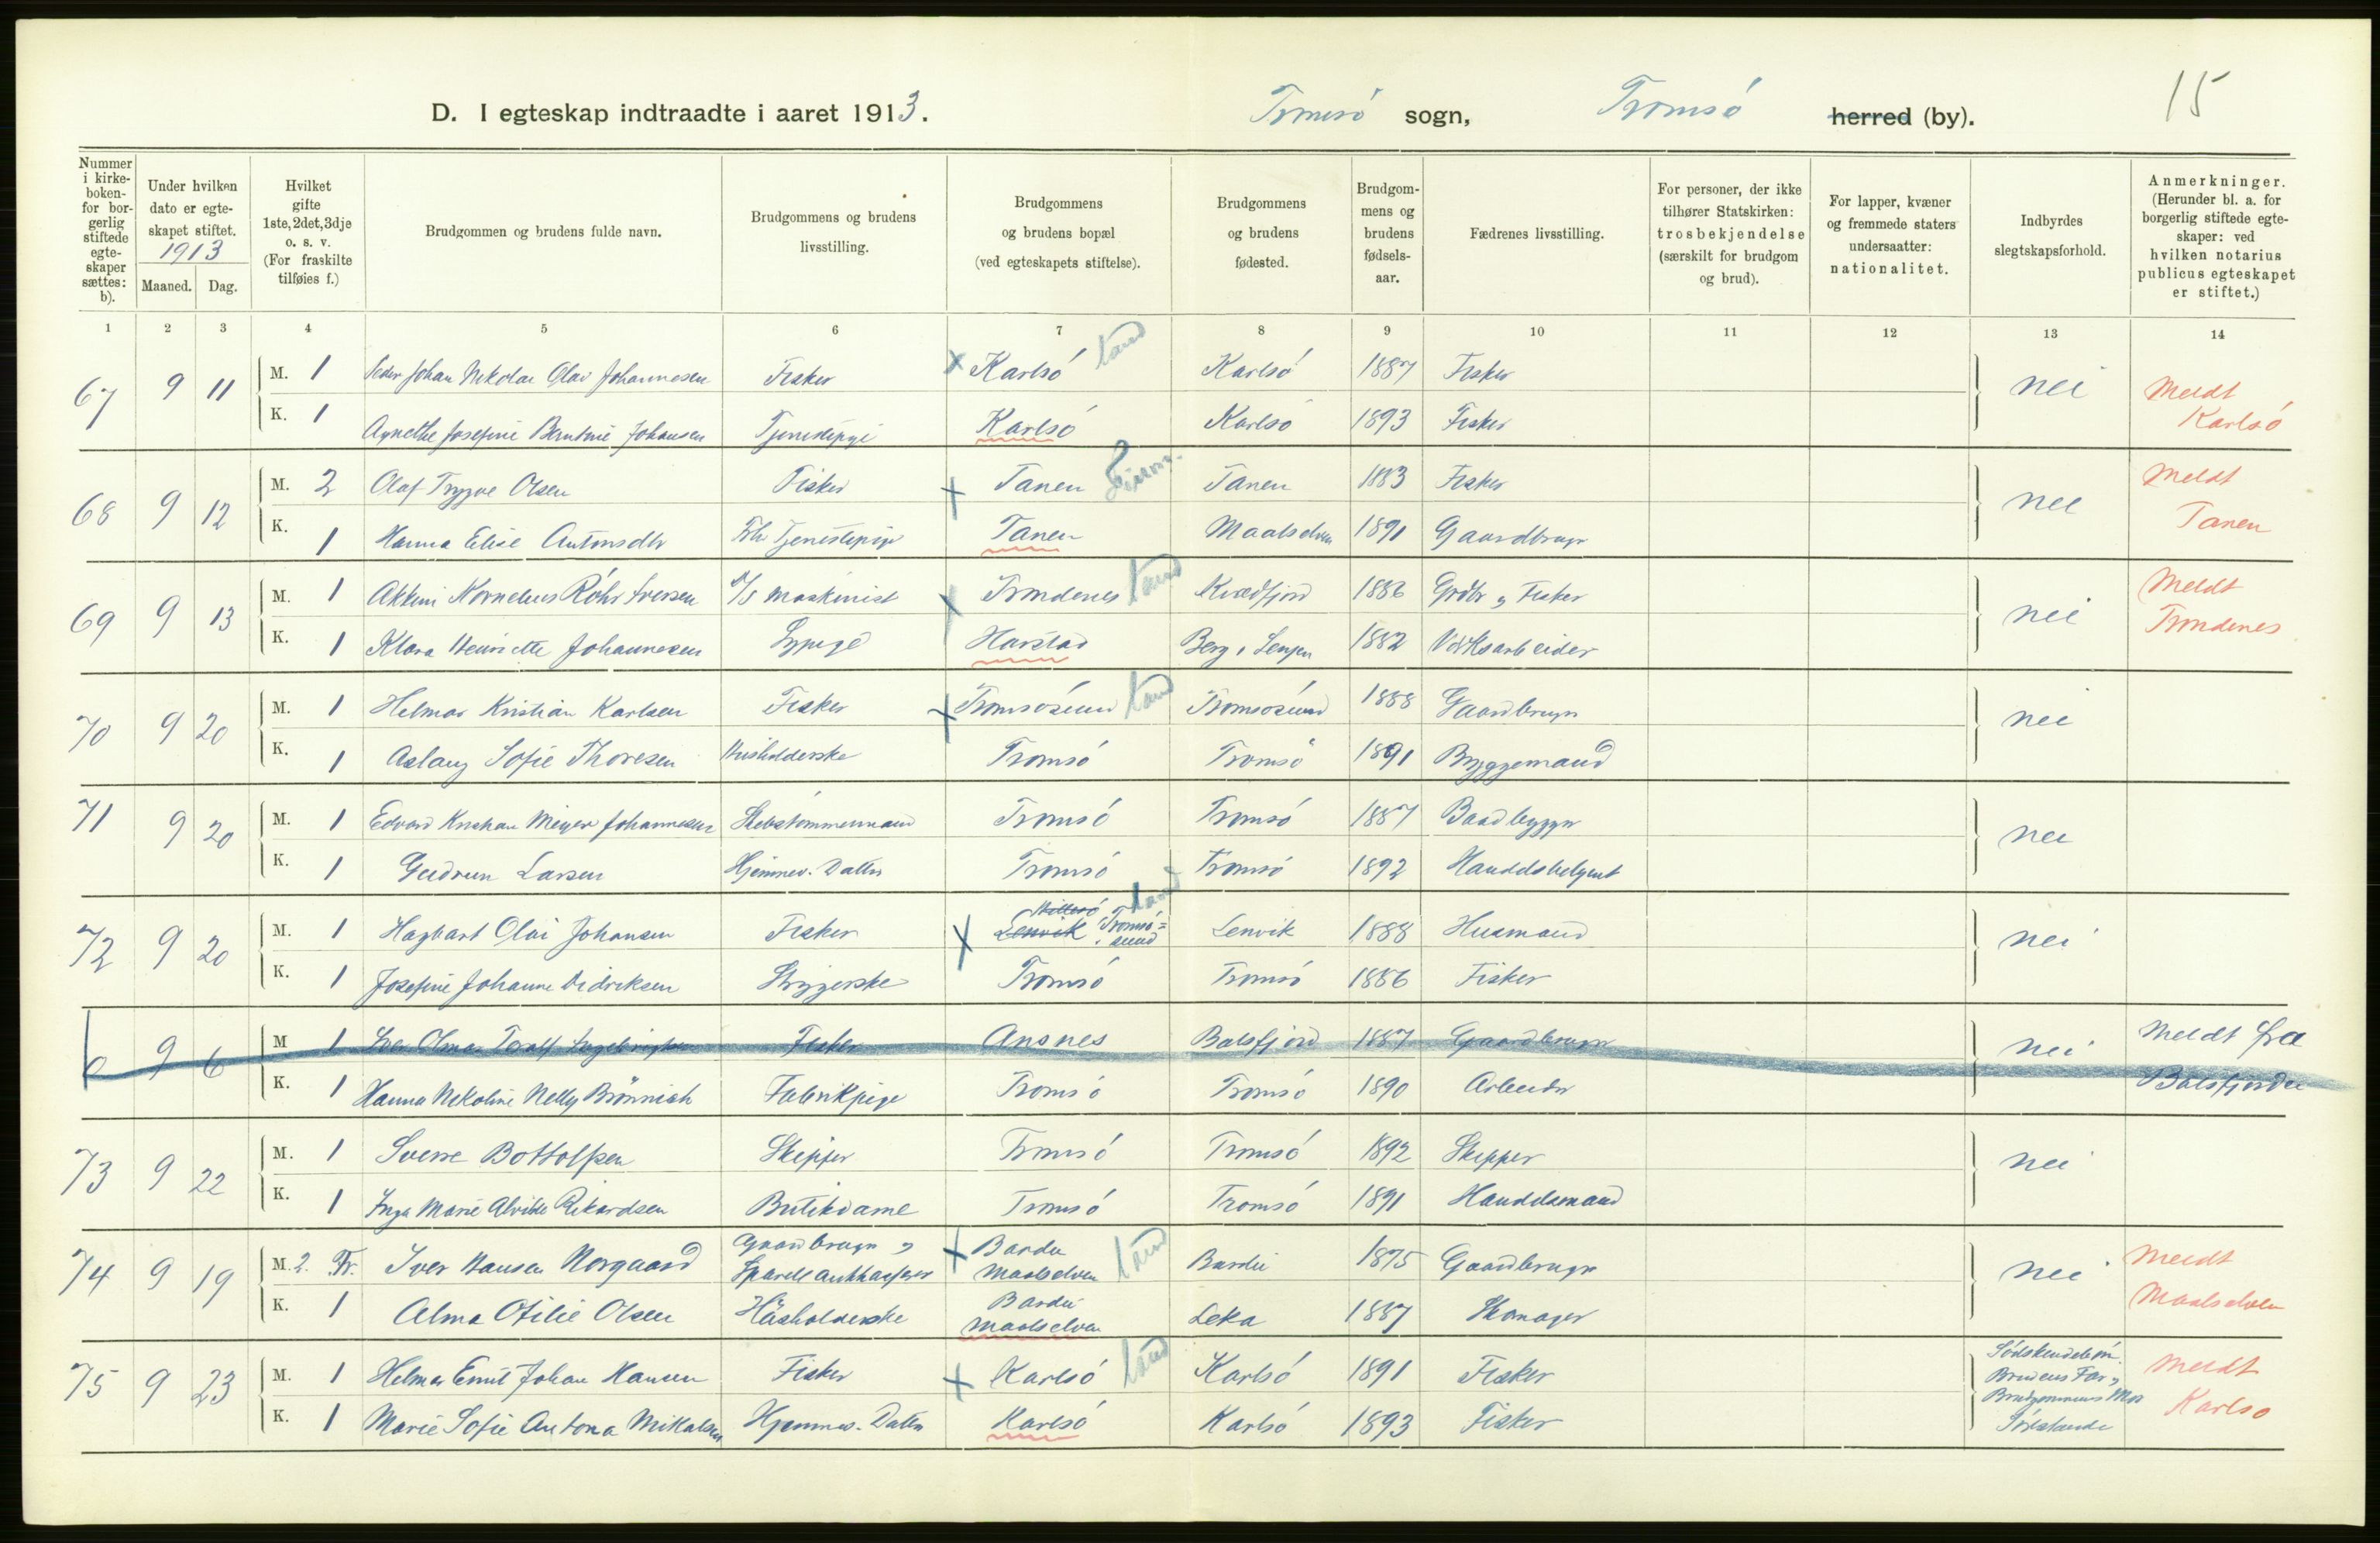 15
D. I egteskap indtraadte i aaret 1913. Tromsö sogn, Tromsö herred (by).
Nummer i kirke-boken- for bor-gerlig stiftede egte-skaper sættes: b).
Under hvilken dato er egte-skapet stiftet. 1913 Maaned. Dag.
Hvilket gifte 1ste, 2det, 3dje o. s. v. (For fraskilte tilføies f.)
Brudgommen og brudens fulde navn.
Brudgommens og brudens livsstilling.
Brudgommens og brudens bopæl (ved egteskapets stiftelse).
Brudgommens og brudens fødested.
Brudgom-mens og brudens fødsels-aar.
Fædrenes livsstilling.
For personer, der ikke tilhører Statskirken: trosbekjendelse (særskilt for brudgom og brud).
For lapper, kvæner og fremmede staters undersaatter: nationalitet.
Indbyrdes slegtskapsforhold.
Anmerkninger. (Herunder bl. a. for borgerlig stiftede egte-skaper: ved hvilken notarius publicus egteskapet er stiftet.)
1 2 3 4 5 6 7 8 9 10 11 12 13 14
67 9 11 M. 1 Peder Johan Nikolai Olav Johannesen Fisker x Karlsö land Karlsö 1887 Fisker nei Meldt
K. 1 Agnethe Josefine Berntine Johansen Tjenestepige Karlsö Karlsö 1893 Fisker Karlsö
68 9 12 M. 2 Olaf Trygve Olsen Fisker x Tanen Finm. Tanen 1883 Fisker nei Meldt
K. 1 Hanna Elise Antonsdtr Fhv Tjenestepige Tanen Maalselven 1891 Gaardbruger Tanen
69 9 13 M. 1 Kornelius Röhr Iversen D/S maskinist x Trondenes land Kvædfjord 1886 Grdbr og Fisker nei Meldt
K. 1 Klara Henriette Johannesen Sypige Harstad Berg i Senjen 1882 Verksarbeider Trondenes
70 9 20 M. 1 Helmar Kristian Karlsen Fisker x Tromsösund land Tromsösund 1888 Gaardbruger nei
K. 1 Aslaug Sofie Thoresen Husholderske Tromsö Tromsö 1891 Bryggemand
71 9 20 M. 1 Edvard Kristian Meyer Johannesen Skibstömmermand Tromsö Tromsö 1887 Baadbygger nei
K. 1 Gudrun Larsen Hjemmev. Datter Tromsö Tromsö 1892 Handelsbetjent
72 9 20 M. 1 Hagbart Olai Johansen Fisker x Lenvik Tromsö=sund land Lenvik 1888 Husmand nei
K. 1 Josefine Johanne Didriksen Strygerske Tromsö Tromsö 1886 Fisker
b 9 6 M 1 Olmar Toralf Ingebrigtsen Fisker Ansnes Balsfjord 1887 Gaardbruger nei Meldt fra
K. 1 Hanna Nikoline Nelly Brönnich Fabrikpige Tromsö Tromsö 1890 Arbeider Balsfjorden
73 9 22 M. 1 Sverre Bottolfsen Skipper Tromsö Tromsö 1892 Skipper nei
K. 1 Inga Marie Alvilde Rikardsen Butikdame Tromsö Tromsö 1891 Handelsmand
74 9 19 M. 2. Fr. Iver Hansen Norgaard Gaardbruger og Sparebankkasserer x Bardu Maalselven land Bardu 1875 Gaardbruger nei Meldt
K. 1 Alma Otilie Olsen Husholderske Bardu Maalselven Leka 1887 Skomager Maalselven
75 9 23 M. 1 Helmer Emil Johan Hansen Fisker x Karlsö land Karlsö 1891 Fisker Södskendebörn. Brudens Far og Meldt
K. 1 Marie Sofie Antona Mikalsen Hjemmev. Datter Karlsö Karlsö 1893 Fisker Brudgommens Mor Södskende Karlsö